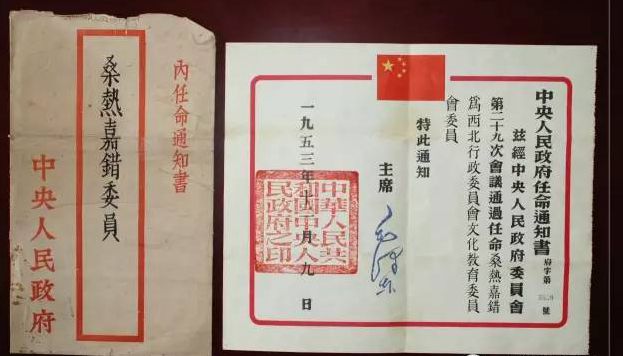 內任命通知書
桑熱嘉錯委員
中央人民政府
中央人民政府任命通知書
府字第 號
茲經中央人民政府委員會
第二十九次會議通過任命桑熱嘉錯
爲西北行政委員會文化教育委員
會委員
特此通知
主席
毛澤東
一九五三年 月九日
中華人民共
和國中央人
民政府之印